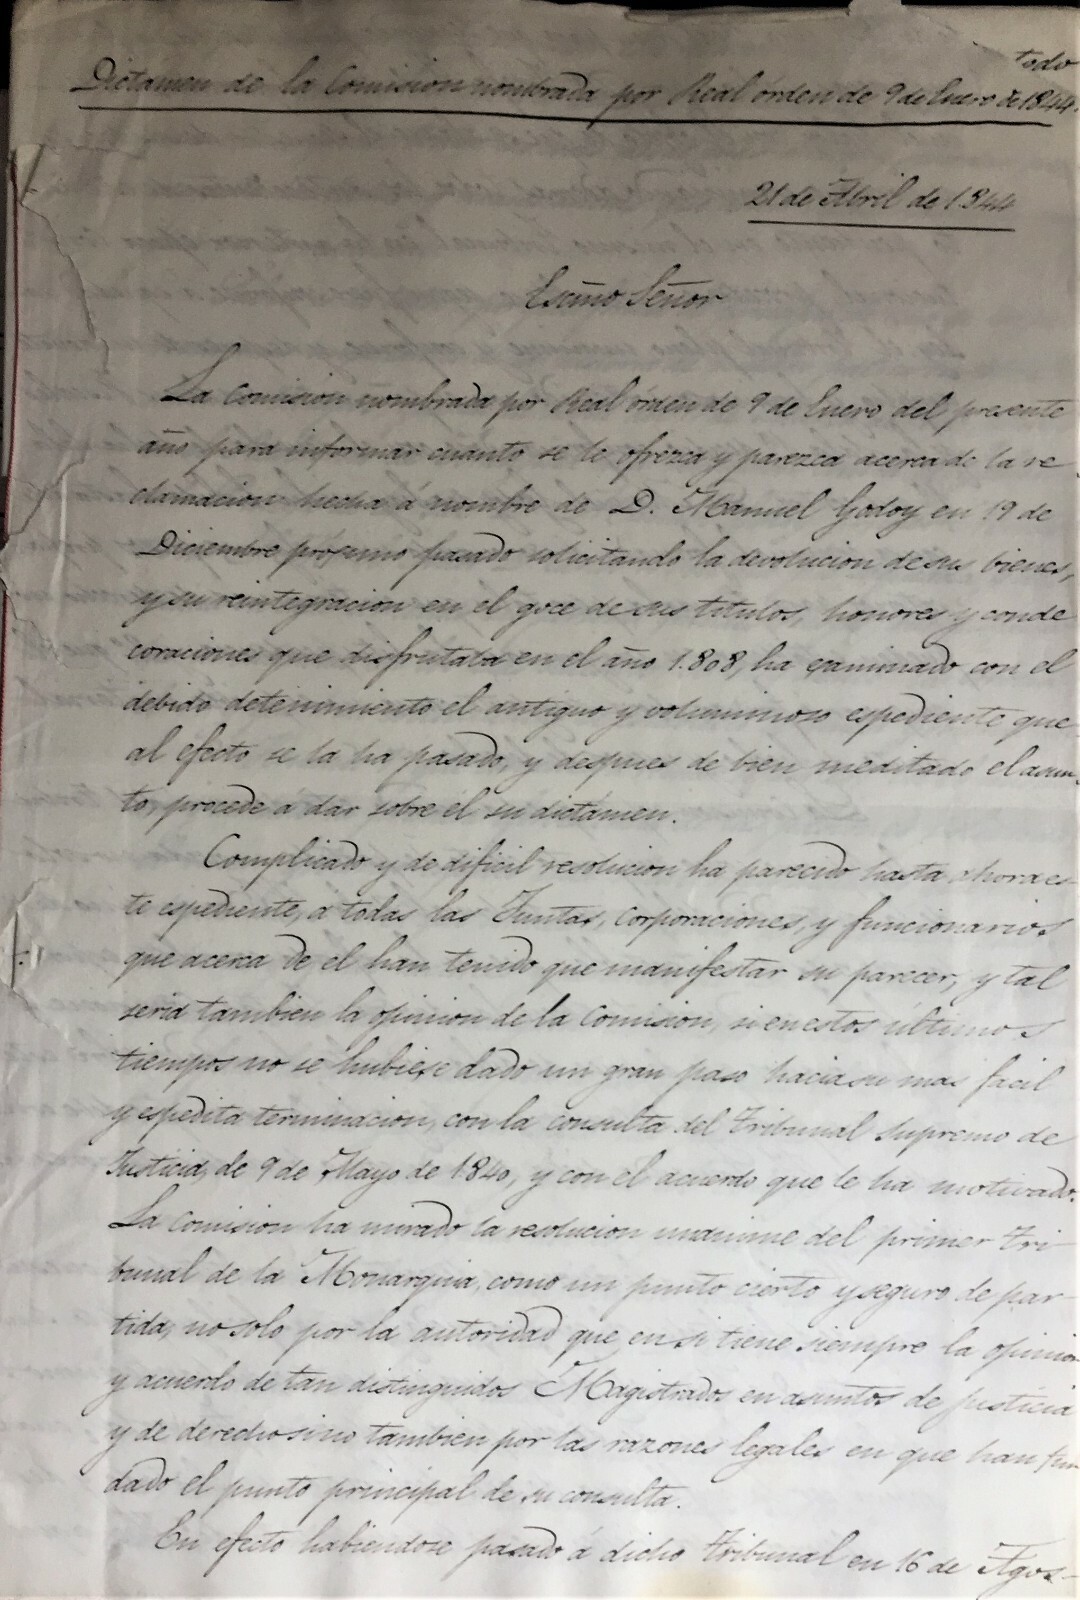 todo
Dictamen de la Comision nombrada por Real órden de 9 de Enero de 1844.
21 de Abril de 1844
Escmo Señor
La Comision nombrada por Real órden de 9 de Enero del presente
año para informar cuanto se le ofrezca y parezca acerca de la re
clamacion hecha á nombre de D. Manuel Godoy en 19 de
Diciembre prócsimo pasado solicitando la devolucion de sus bienes,
y su reintegracion en el goce de sus titulos, honores y conde
coraciones que disfrutaba en el año 1.808, ha ecsaminado con el
debido detenimiento el antiguo y voluminoso espediente que
al efecto se la ha pasado, y despues de bien meditado el asun-
to, procede á dar sobre él su dictámen.
Complicado y de dificil resolucion ha parecido hasta ahora es-
te espediente, a todas las Juntas, corporaciones, y funcionarios
que acerca de el han tenido que manifestar su parecer, y tal
seria tambien la opinion de la Comision, si en estos últimos
tiempos no se hubiese dado un gran paso hacia su mas fácil
y espedita terminacion, con la consulta del Tribunal Supremo de
Justicia, de 9 de Mayo de 1.840, y con el acuerdo que le ha motivado.
La Comision ha mirado la resolucion unanime del primer Tri
bunal de la Monarquia, como un punto cierto y seguro de par-
tida, no solo por la autoridad que en si tiene siempre la opinion
y acuerdo de tan distinguidos Magistrados en asuntos de justicia
y de derecho sino tambien por las razones legales en que han fun-
dado el punto principal de su consulta.
En efecto habiendose pasado á dicho Tribunal en 16 de Agos-